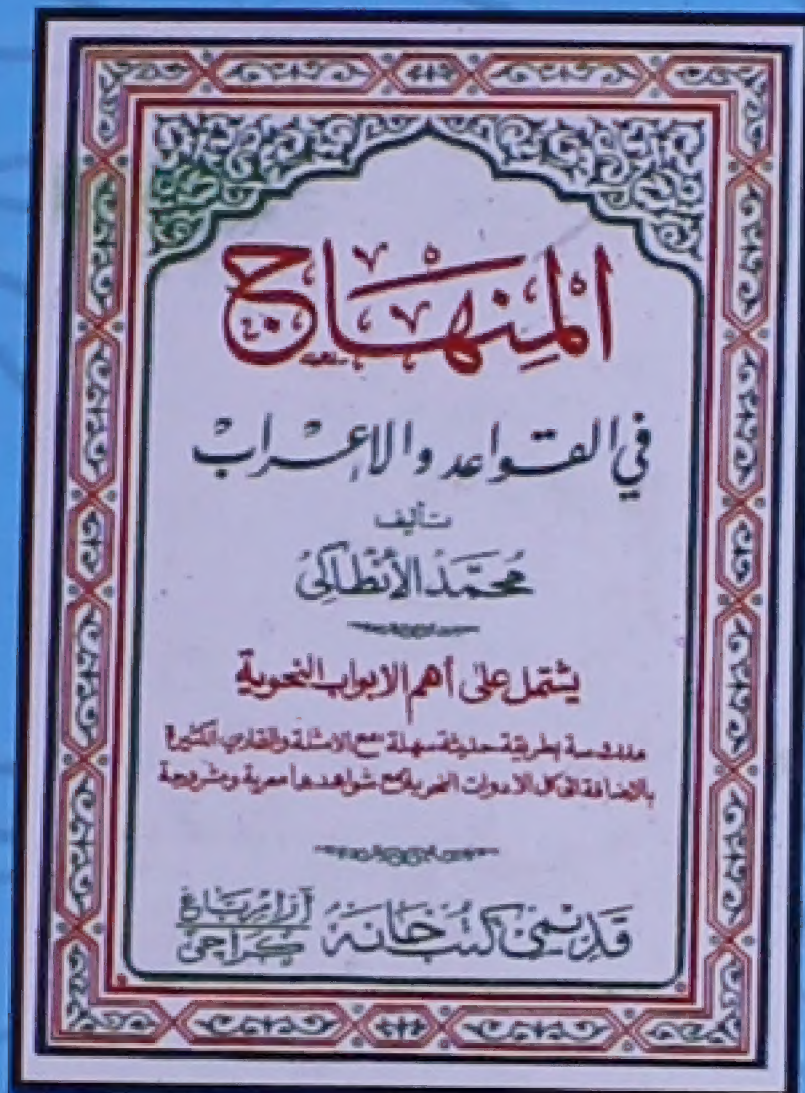 المنهاج
في القواعد والإعراب
تأليف
محمد الأنطاكي
يشتمل على أهم الابواب النحوية
مدروسة بطريقة حديثة سهلة مع الامثلة والتمارين الكثيرة
بالاضافة الى كل الادوات النحوية مع شواهدها معربة ومشروحة
قديمي كتب خانه آرام باغ
كراچی